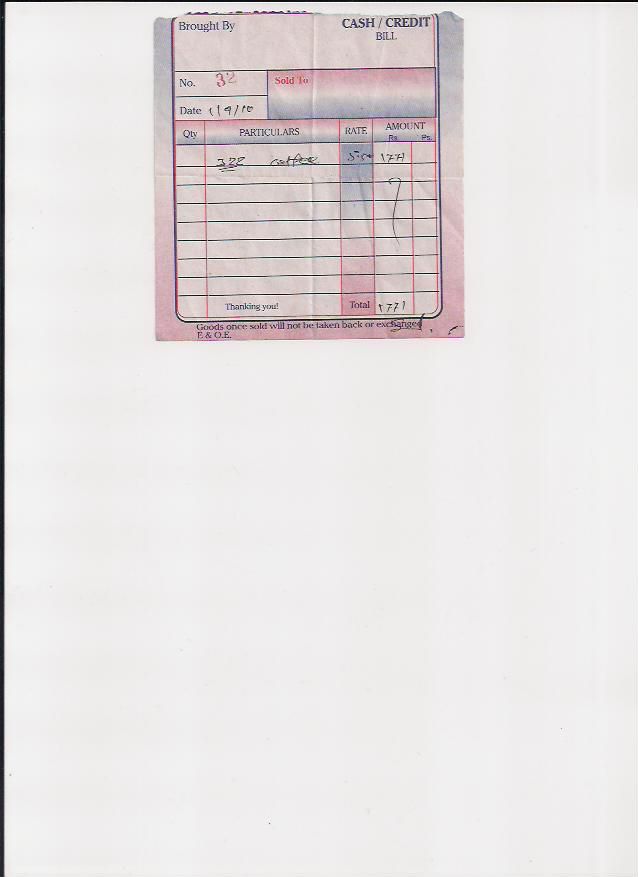 Brought By CASH / CREDIT
BILL
No. 32 Sold To
Date 1/9/10
Qty PARTICULARS RATE AMOUNT
Rs. Ps.
322 coffee 5.50 1771
Thanking you! Total 1771
Goods once sold will not be taken back or exchanged
E & O.E.